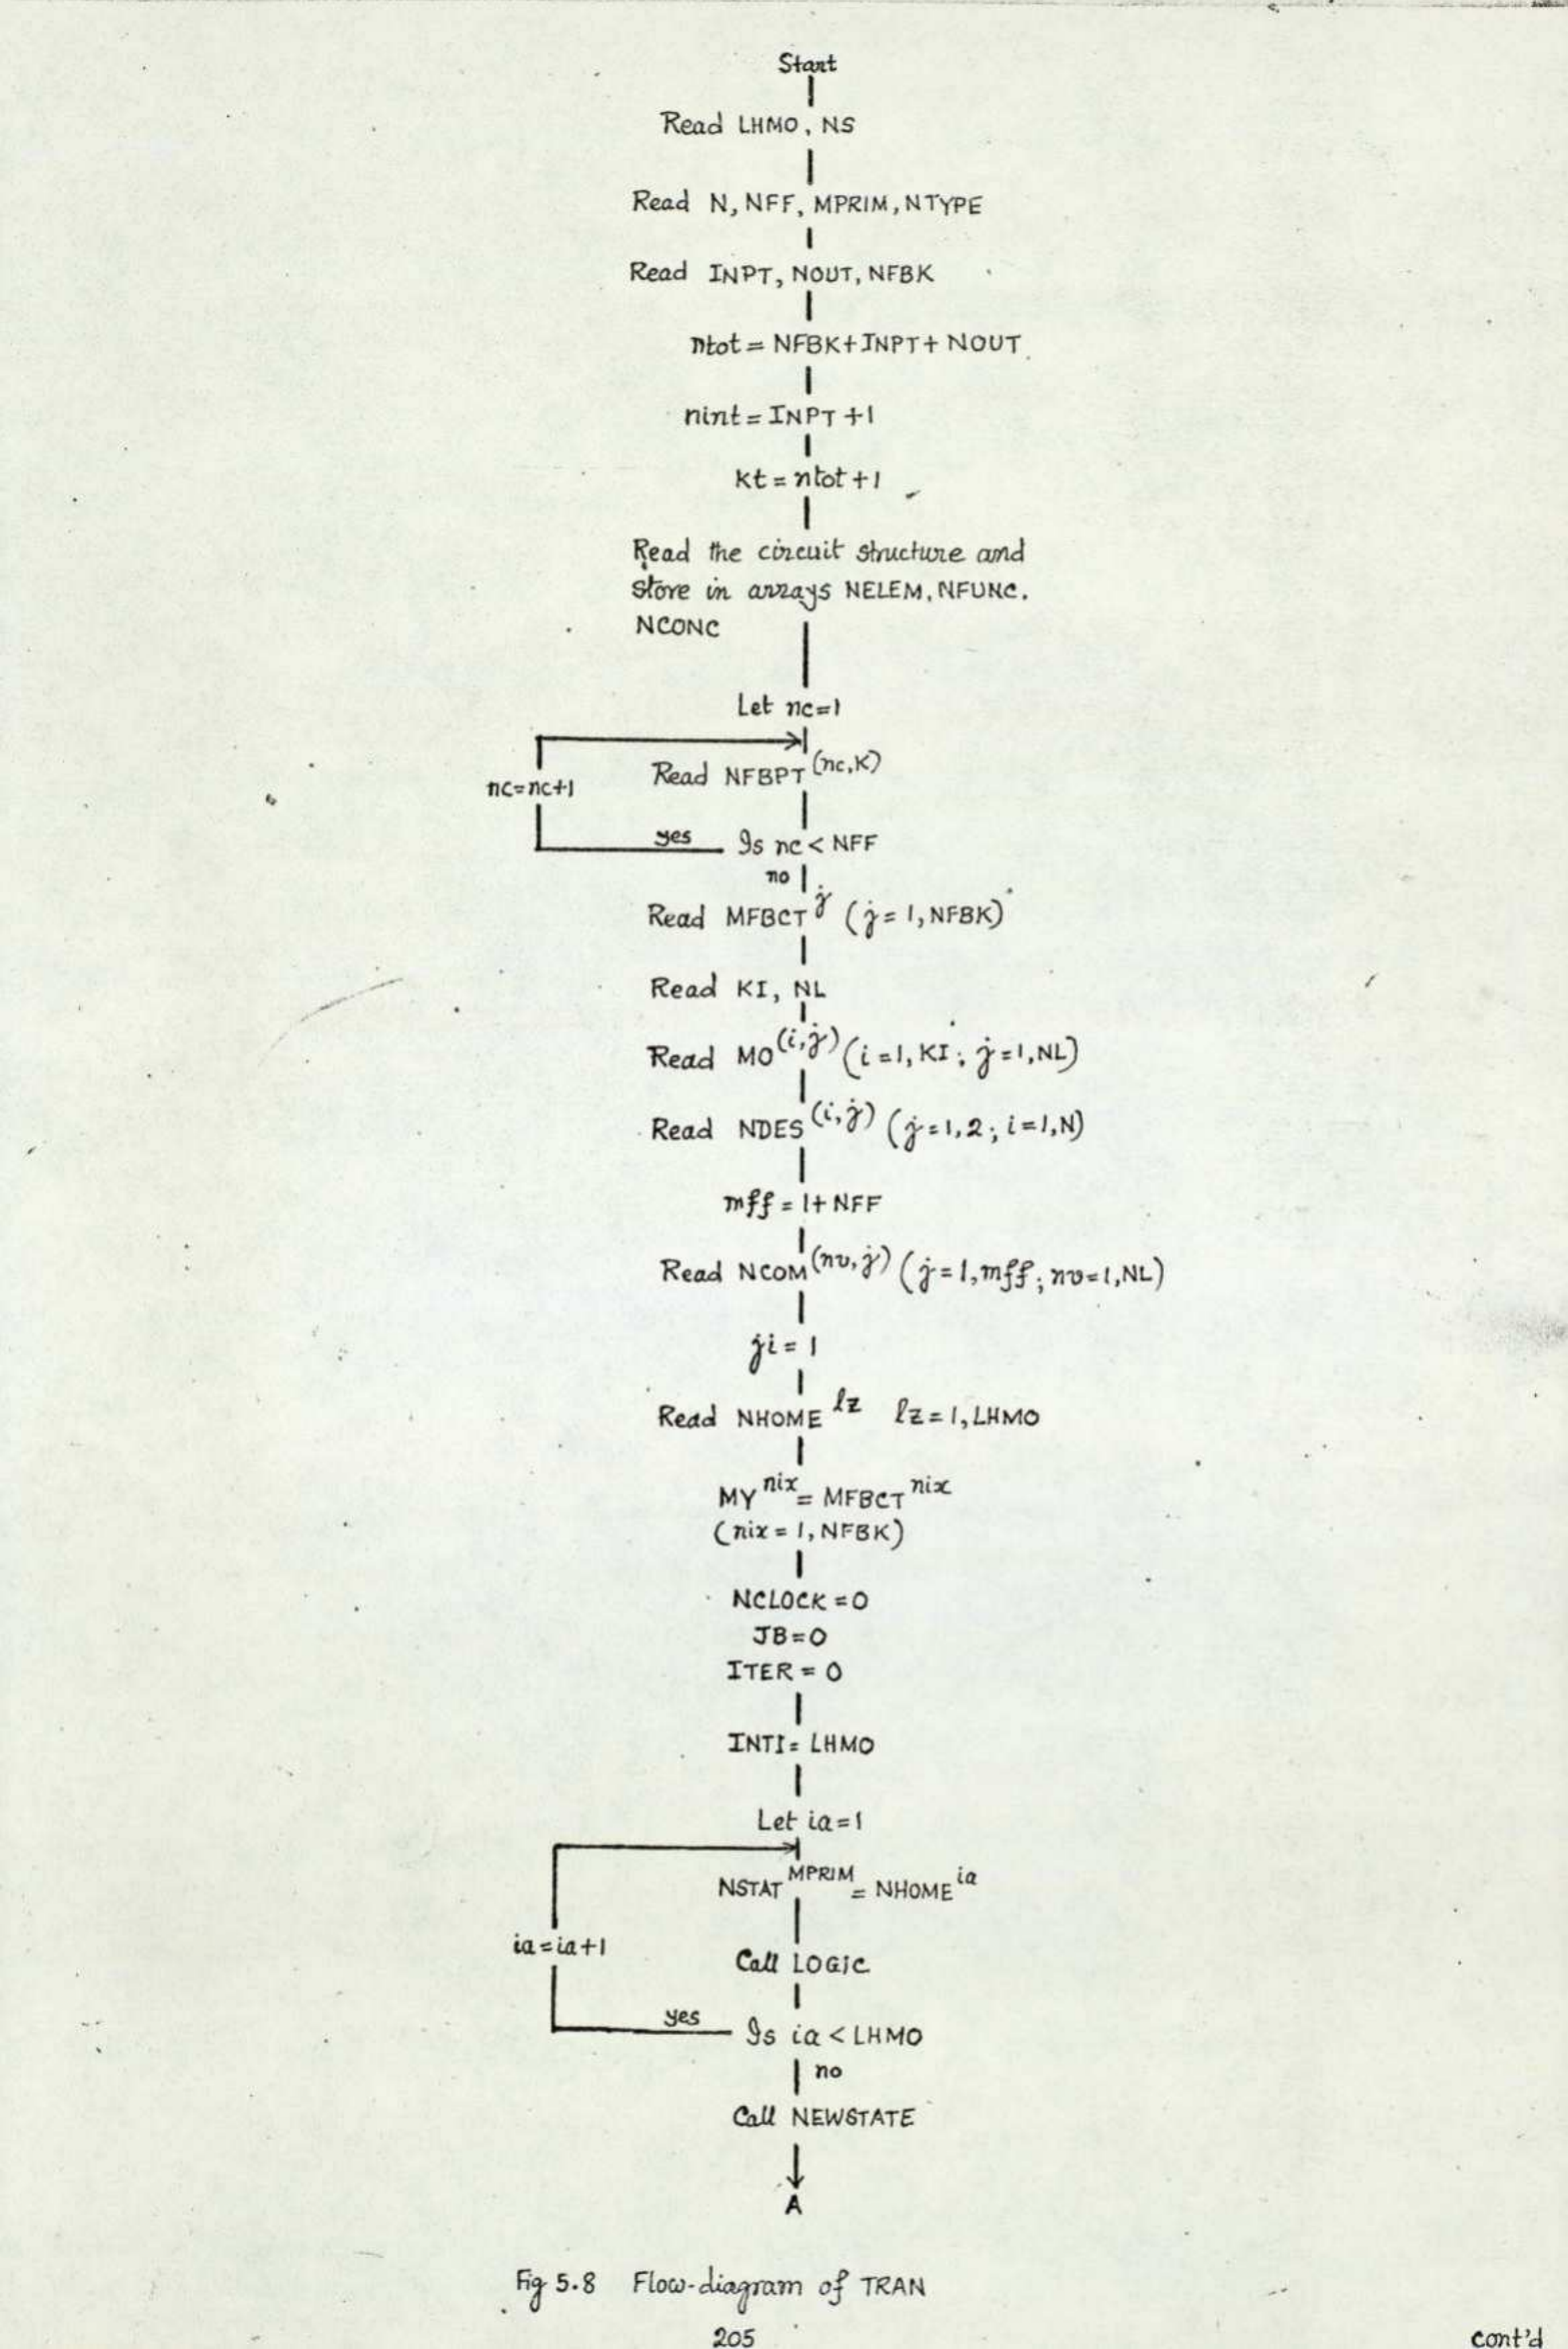 Start
Read LHMO, NS
Read N, NFF, MPRIM, NTYPE
Read INPT, NOUT, NFBK
ntot = NFBK+INPT+ NOUT
nint = INPT +1
kt = ntot +1
Read the circuit structure and
store in arrays NELEM, NFUNC,
NCONC
Let nc=1
Read NFBPT (nc,K)
nc=nc+1
yes Is nc < NFF
no
Read MFBCT j (j = 1, NFBK)
Read KI, NL
Read MO (i,j) (i=1, KI; j=1, NL)
Read NDES (i,j) (j=1,2; i=1,N)
mff = 1+ NFF
Read NCOM (nv,j) (j=1,mff; nv=1,NL)
ji = 1
Read NHOME lz lz = 1, LHMO
MY nix = MFBCT nix
(nix = 1, NFBK)
NCLOCK = 0
JB=0
ITER = 0
INTI = LHMO
Let ia=1
NSTAT MPRIM = NHOME ia
ia = ia+1
Call LOGIC
yes Is ia < LHMO
no
Call NEWSTATE
A
Fig 5.8 Flow-diagram of TRAN
205
cont'd